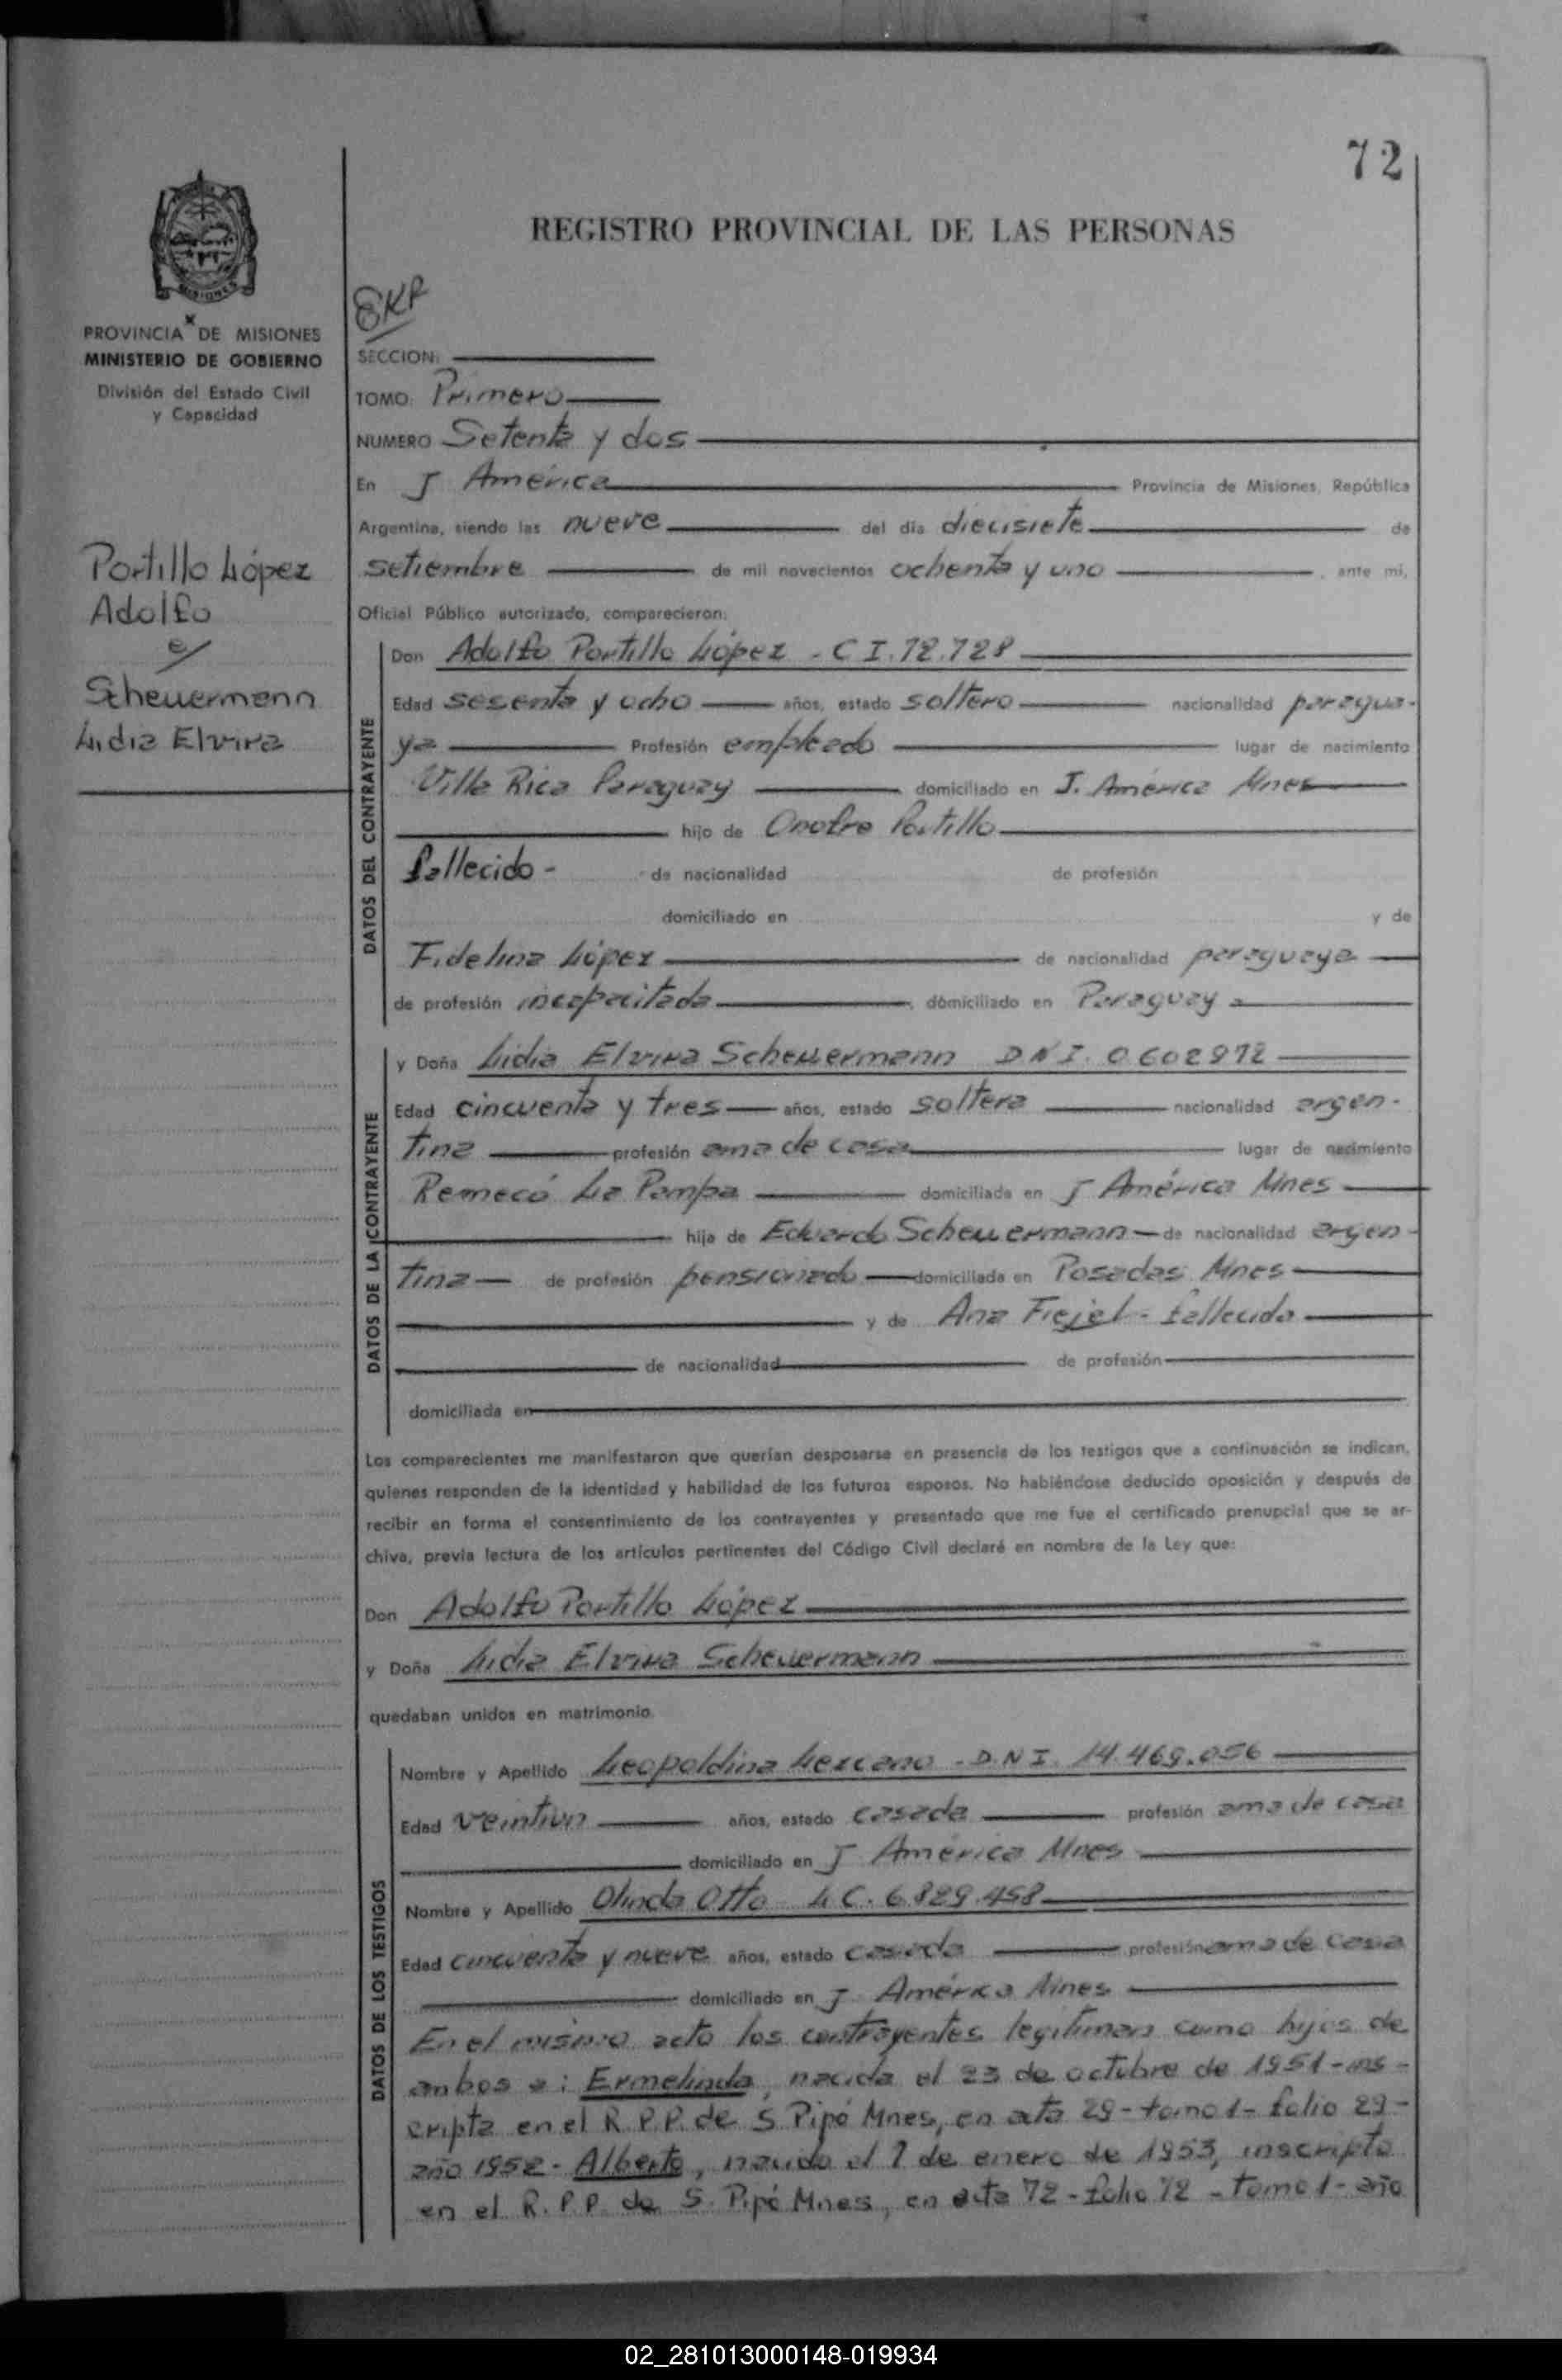 72
REGISTRO PROVINCIAL DE LAS PERSONAS
MISIONES
PROVINCIA DE MISIONES
MINISTERIO DE GOBIERNO
División del Estado Civil
y Capacidad
Portillo López
Adolfo
c/
Scheuermann
Lidia Elvira
SECCION:
TOMO: Primero
NUMERO Setenta y dos
En J América Provincia de Misiones, República
Argentina, siendo las nueve del día diecisiete de
setiembre de mil novecientos ochenta y uno, ante mí,
Oficial Público autorizado, comparecieron:
DATOS DEL CONTRAYENTE
Don Adolfo Portillo López - C I. 72.728
Edad sesenta y ocho años, estado soltero nacionalidad paragua-
ya Profesión empleado lugar de nacimiento
Villa Rica Paraguay domiciliado en J. América Mnes
hijo de Onofre Portillo
fallecido - de nacionalidad de profesión
domiciliado en y de
Fidelina López de nacionalidad paraguaya
de profesión incapacitada, domiciliado en Paraguay
DATOS DE LA CONTRAYENTE
y Doña Lidia Elvira Scheuermann DNI. 0.602.872
Edad cincuenta y tres años, estado soltera nacionalidad argen-
tina profesión ama de casa lugar de nacimiento
Remecó La Pampa domiciliada en J América Mnes
hija de Eduardo Scheuermann de nacionalidad argen-
tina de profesión pensionado domiciliada en Posadas Mnes
y de Ana - fallecida
de nacionalidad de profesión
domiciliada en
Los comparecientes me manifestaron que querían desposarse en presencia de los testigos que a continuación se indican,
quienes responden de la identidad y habilidad de los futuros esposos. No habiéndose deducido oposición y después de
recibir en forma el consentimiento de los contrayentes y presentado que me fue el certificado prenupcial que se ar-
chiva, previa lectura de los artículos pertinentes del Código Civil declaré en nombre de la Ley que:
Don Adolfo Portillo López
y Doña Lidia Elvira Scheuermann
quedaban unidos en matrimonio.
DATOS DE LOS TESTIGOS
Nombre y Apellido Leopoldina Lexcano - D.N I. 14.469.056
Edad veintiun años, estado casada profesión ama de casa
domiciliado en J América Mnes
Nombre y Apellido Olinda Otto L C. 6.829.458
Edad cincuenta y nueve años, estado casada profesión ama de casa
domiciliado en J. América Mnes
En el mismo acto los contrayentes legitiman como hijos de
ambos a: Ermelinda, nacida el 23 de octubre de 1951 - ins-
cripta en el R.P.P. de S Pipó Mnes, en acta 29 - tomo 1 - folio 29 -
año 1952 - Alberto, nacido el 7 de enero de 1953, inscripto
en el R.P.P. de S. Pipó Mnes, en acta 72 - folio 72 - tomo 1 - año
02_281013000148-019934